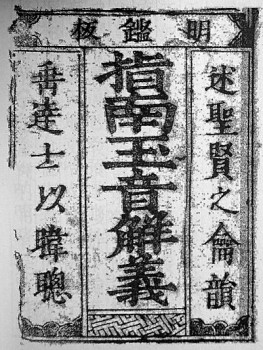 明鑑板
述聖賢之韻
指南玉音解義
垂達士以暐聰